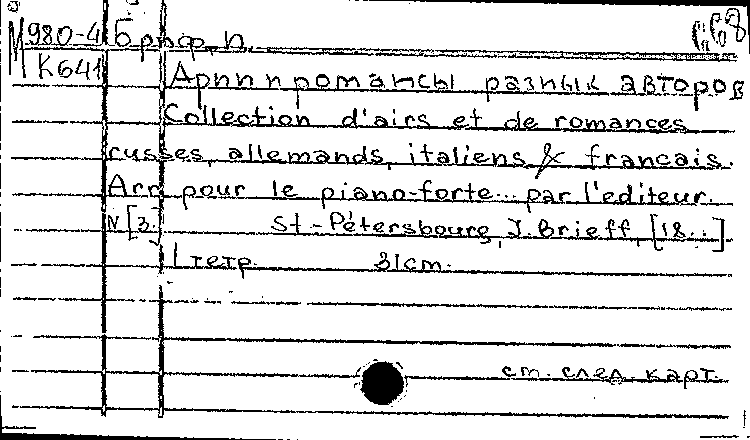 М 980-4 Бриф, И.
К641
Арии и романсы разных авторов
Collection d'airs et de romances
russes, allemands, italiens & francais.
Arr pour le piano-forte... par l'editeur.
N [3.] St.-Pétersbourg, J. Brieff, [18..]
1 тетр. 31cm.
см. след. карт.